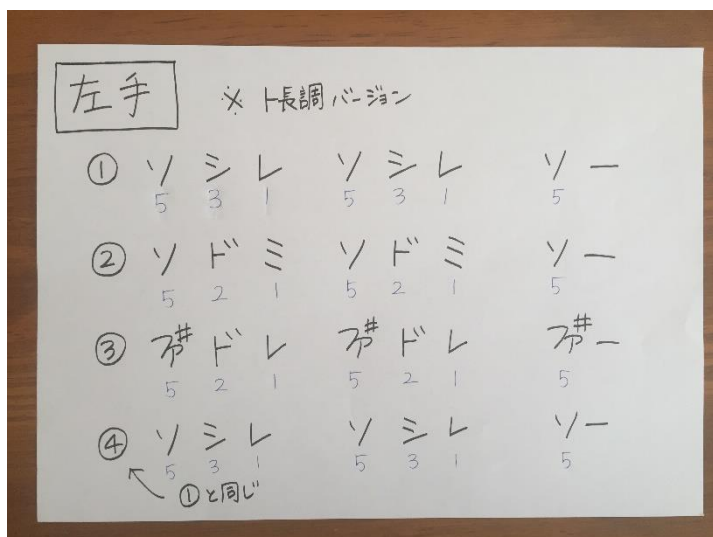 左手
※ ト長調バージョン
① ソ シ レ ソ シ レ ソ ー
5 3 1 5 3 1 5
② ソ ド ミ ソ ド ミ ソ ー
5 2 1 5 2 1 5
③ ファ# ド レ ファ# ド レ ファ# ー
5 2 1 5 2 1 5
④ ソ シ レ ソ シ レ ソ ー
5 3 1 5 3 1 5
①と同じ